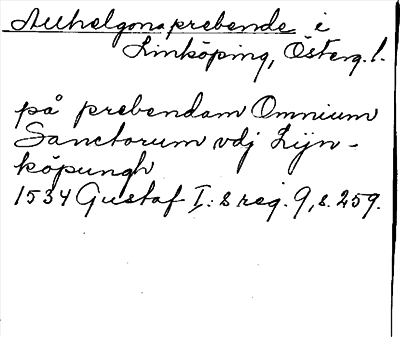 Allhelgonaprebende i
Linköping, Österg. l.
på prebendam Omnium
Sanctorum vdj Lijn-
köpungh
1534 Gustaf I:s reg. 9, s. 259.